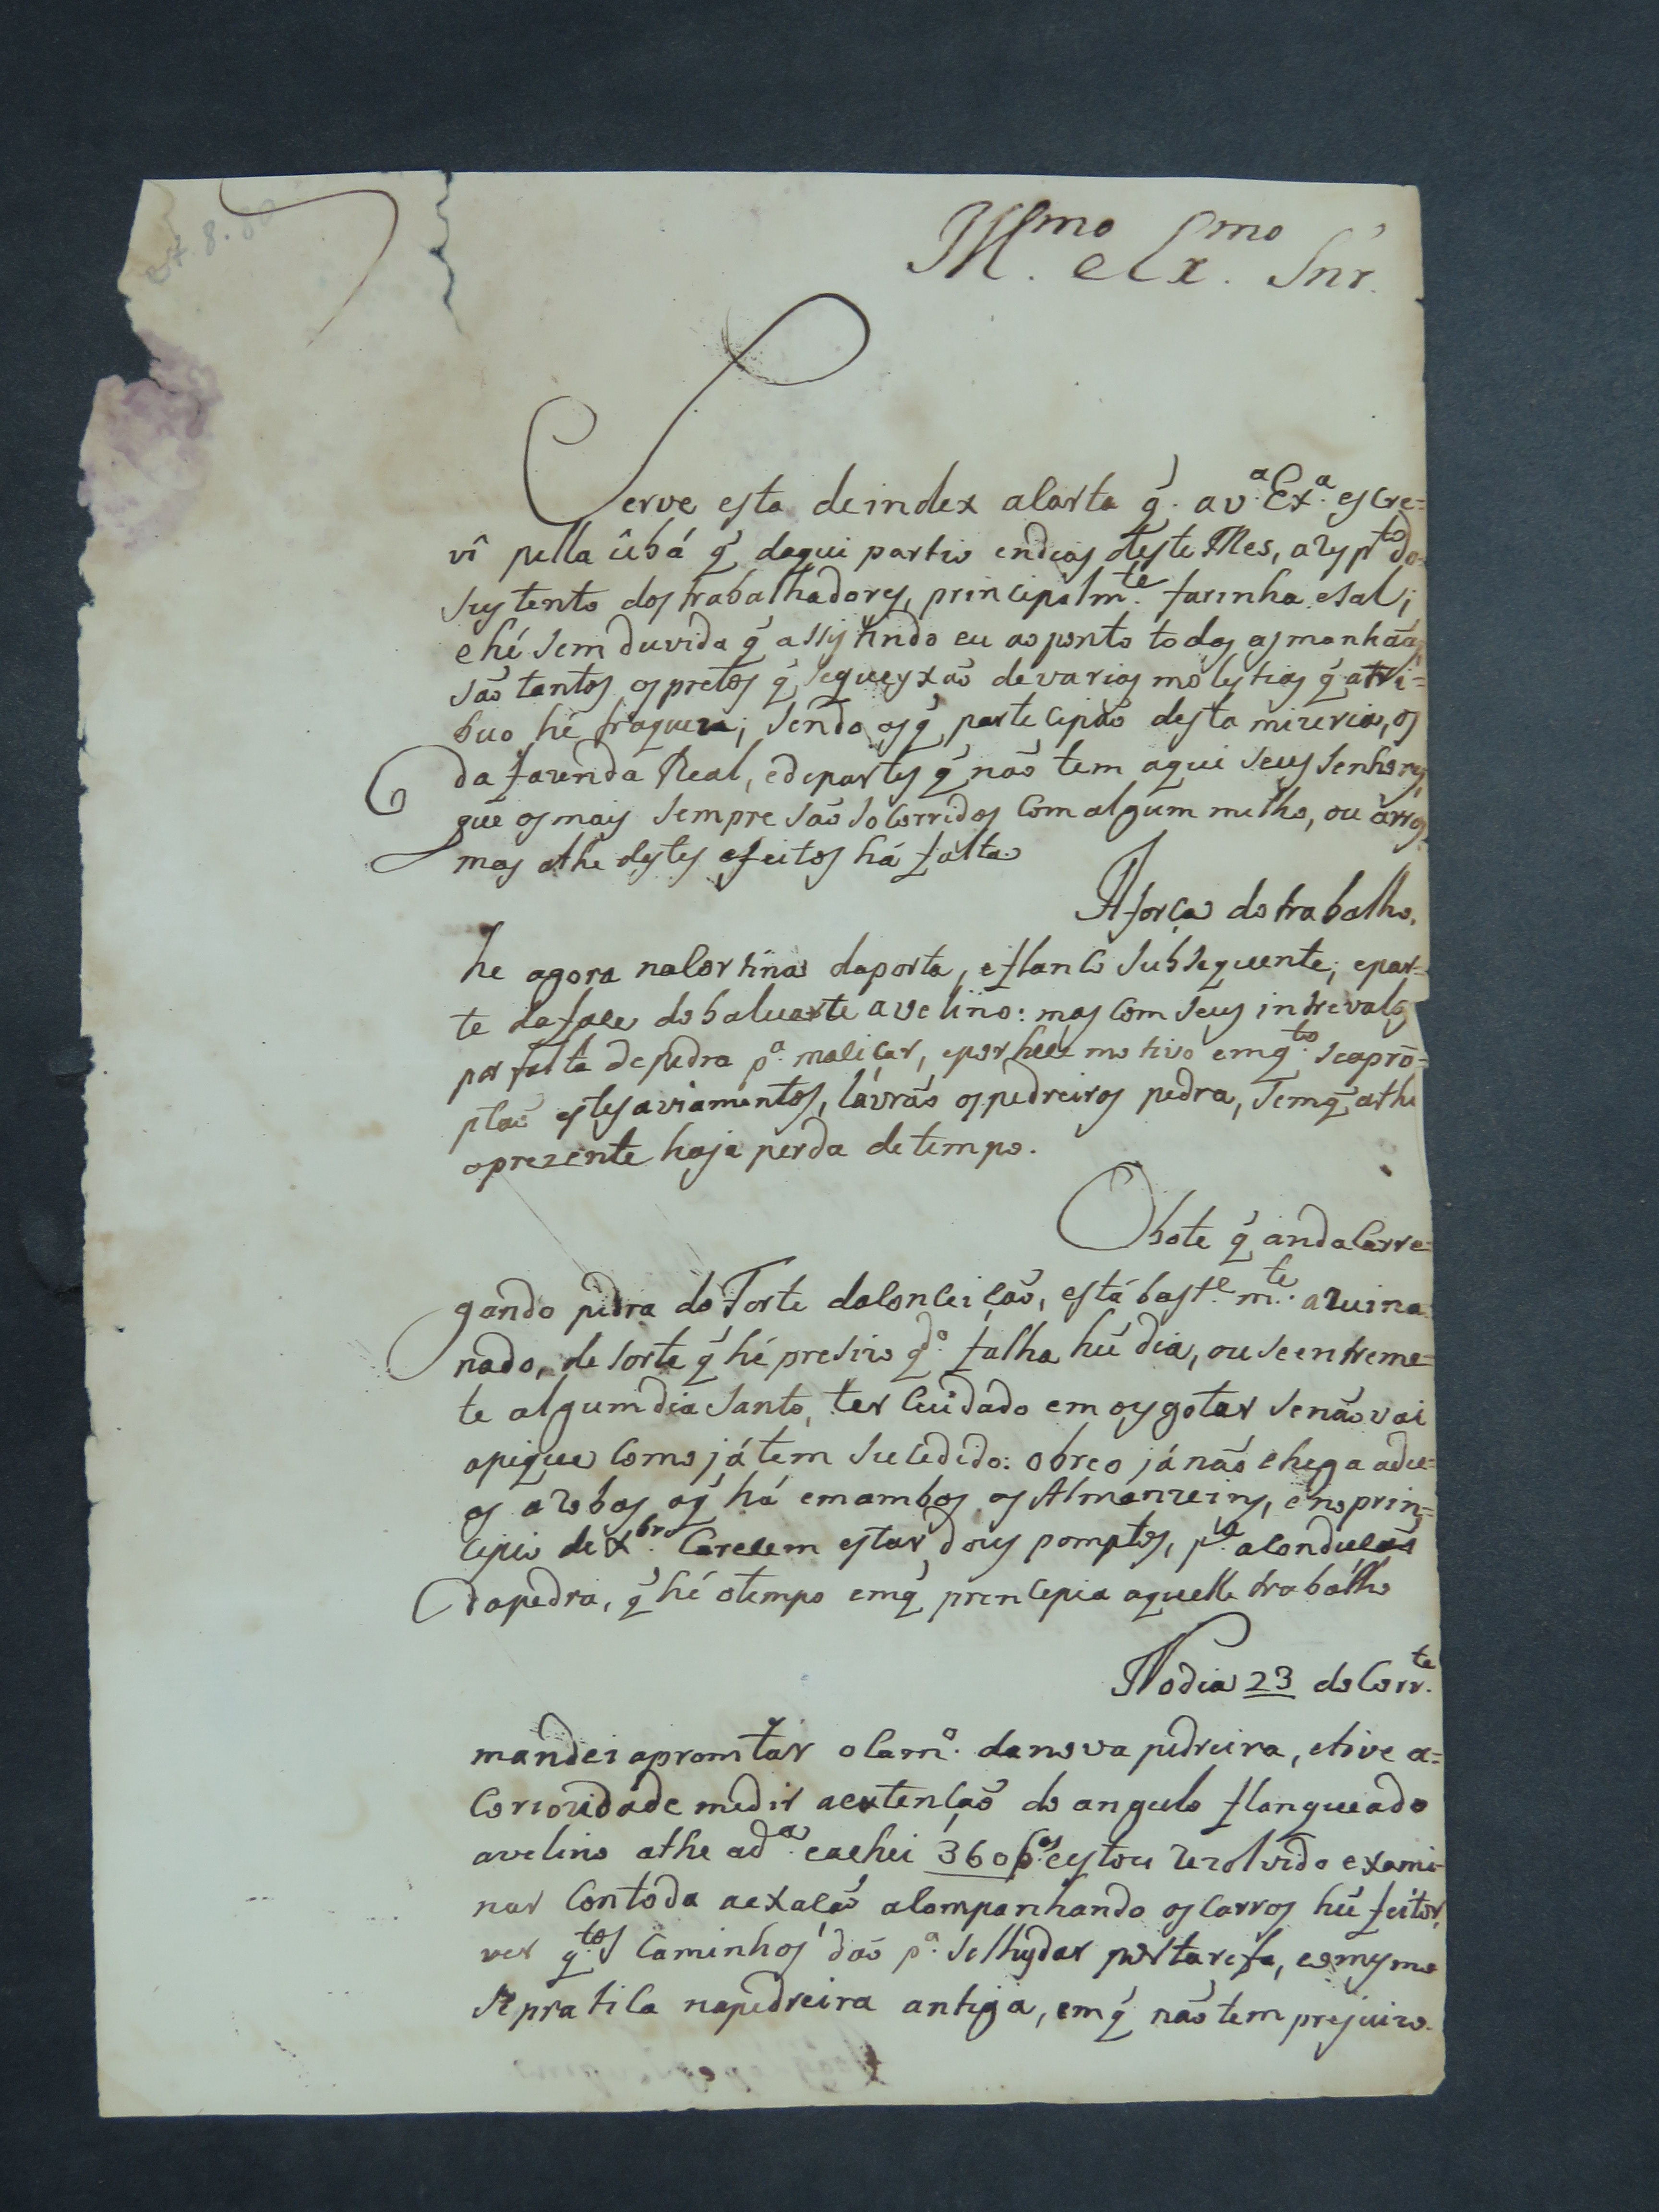 Ill.mo e Ex.mo Snr.
Serve esta de index a Carta q̃. a V.ª Ex.ª escre=
vî pella ûbá q̃ daqui partio en dias deste Mes, a resp.to do
sustento dos trabalhadores, principalm.te farinha e sal;
e hé sem duvida q̃ assistindo eu ao ponto todas as manhãas,
são tantos os pretos q̃ se queyxão de varias molestias q̃ atri=
buo hé fraqueza; sendo os q̃ partecipão desta mizeria, os
da fazenda Real, e de partes q̃ não tem aqui seus senhores,
que os mais sempre são socorridos com algum milho, ou arros
mas athe destes efeitos há falta.
A força do trabalho,
he agora na Cortina da porta, e flanco subsequente, e par=
te da face do baluarte avelino: mas com seus intrevalos
por falta de pedra p.ª maliçar, e por hese motivo emq.to se apron=
ptão estes aviamentos, lavrão os pedreiros pedra, sem q̃ athe
o prezente haja perda de tempo.
O bote q̃ anda Carre=
gando pedra do Forte da Conceição, está bast.e m.te aruina
nado, de sorte q̃ hé presizo q.do falha hũ dia, ou se entreme=
te algum dia santo, ter cuidado em o esgotar se não vai
apique como já tem sucedido: o breo já não chega adu=
os arobas o q̃ há em ambos os Almanzeins, e no prin=
cipio de X.br Carecem estar dous pomptos, p.ª a condução
da pedra, q̃ hé o tempo em q̃ prencepia aquelle trabalho
No dia 23 do Corr.te
mandei apromtar o Cam.º da nova pedreira, e tive a=
Coriozidade medir a extenção do angulo flanqueado
avelino athe a d.ª e achei 360 b.as e estou rezolvido exami=
nar Com toda a exação acompanhando os Carros hũ feitor,
ver q.tos Caminhos dão p.ª se lhes dar por tarefa, e o mesmo
se pratica na pedreira antiga, em q̃ não tem prejuizo.